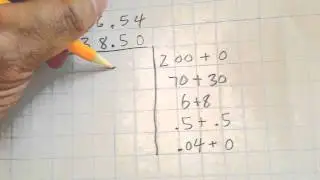 6.54
38.50
200 + 0
70 + 30
6+8
.5 + .5
.04 + 0